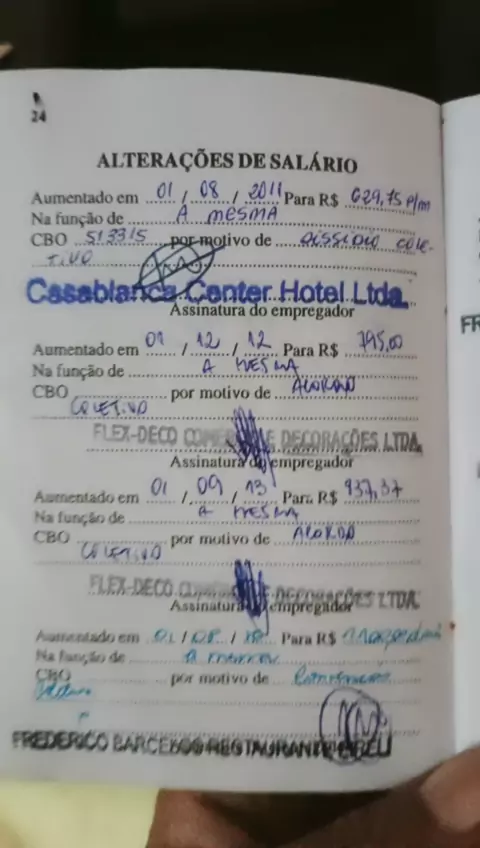 24
ALTERAÇÕES DE SALÁRIO
Aumentado em 01 / 08 / 2011 Para R$ 629,75 p/m
Na função de A MESMA
CBO 513315 por motivo de DISSIDIO COLE-
TIVO
Casablanca Center Hotel Ltda.
Assinatura do empregador
Aumentado em 01 / 12 / 12 Para R$ 795,00
Na função de A MESMA
CBO por motivo de ACORDO
COLETIVO
FLEX-DECO COMERCIO DE DECORAÇÕES LTDA.
Assinatura do empregador
Aumentado em 01 / 09 / 13 Para R$ 937,37
Na função de A MESMA
CBO por motivo de ACORDO
COLETIVO
FLEX-DECO COMERCIO DE DECORAÇÕES LTDA.
Assinatura do empregador
Aumentado em 01 / / Para R$
Na função de A
CBO por motivo de
FREDERICO BARCELOS RESTAURANTE EIRELI
FR